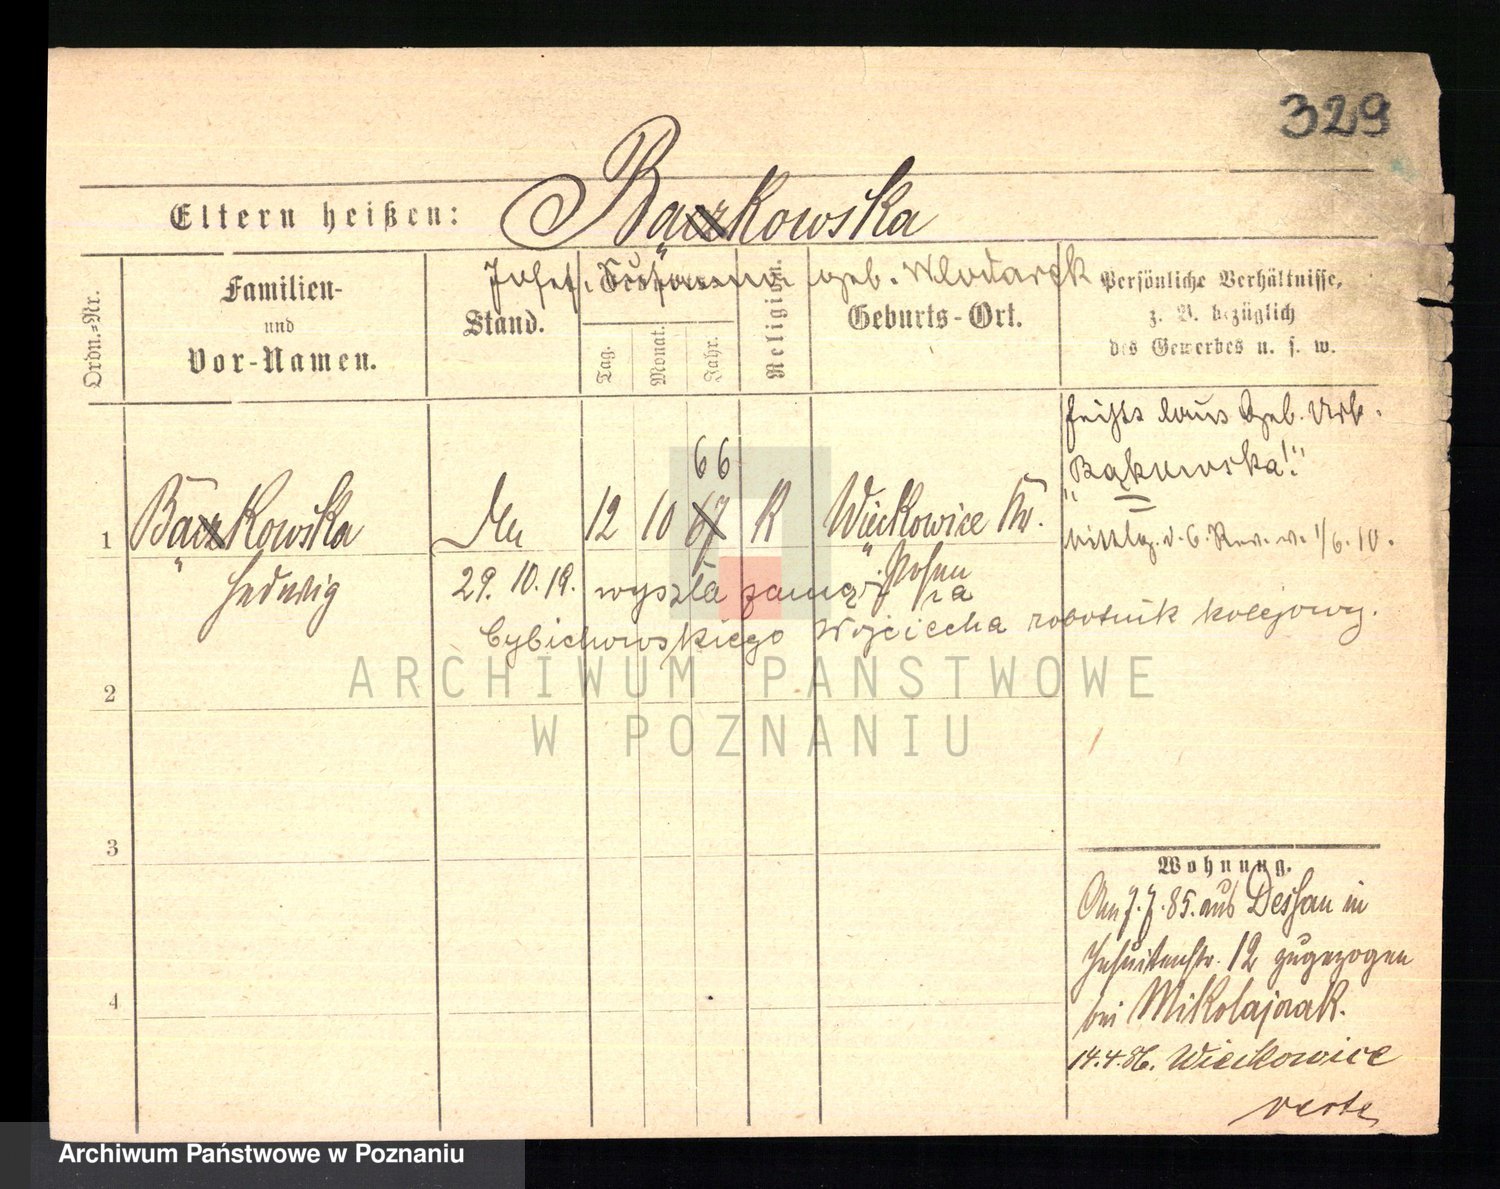 329
Eltern heißen: Bączkowska
Josef. Susanna geb. Wlodarek
Ordn.-Nr.
Familien-
und
Vor-Namen.
Stand.
Tag.
Monat.
Jahr.
Religion.
Geburts-Ort.
Persönliche Verhältnisse,
z. B. bezüglich
des Gewerbes u. s. w.
heißt laut Geb. Urk.
"Bąkowska!"
v. 1/6.10.
66
1 Bączkowska 12 10 67 K Więckowice Kr.
Hedwig Posen
29. 10. 19. wyszła zamąż za
Cybichowskiego Wojciecha robotnik kolejowy.
2
3
4
Wohnung.
Am 7.7.85. aus Dessau in
Jesuitenstr. 12 zugezogen
bei Mikolajczak.
14.4.86. Wieckowice
verte
ARCHIWUM PAŃSTWOWE
W POZNANIU
Archiwum Państwowe w Poznaniu